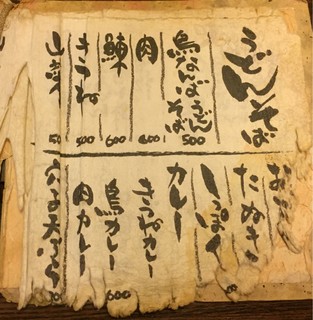 うどん そば
鳥なんばうどん
そば 500
肉 600
鰊 600
きつね 500
山かけ 50
たぬき
しっぽく
カレー
きつねカレー
鳥カレー 600
肉カレー